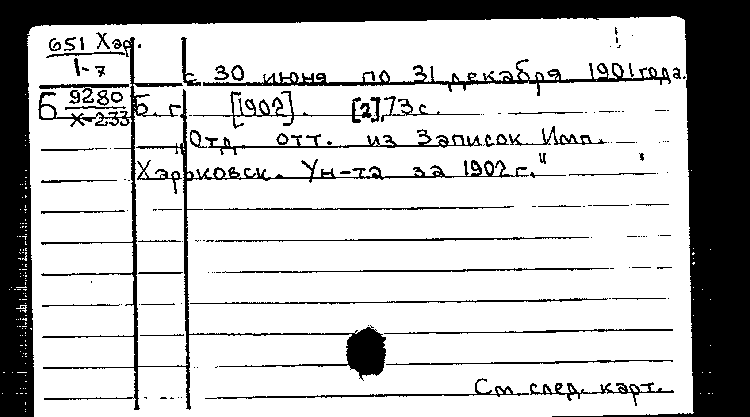 651 Хар.
1-7
с 30 июня по 31 декабря 1901 года.
Б 9280
Х-233
Б. г. [1902]. [2], 73 с.
"Отд. отт. из Записок Имп.
Харьковск. Ун-та за 1902 г."
См. след. карт.